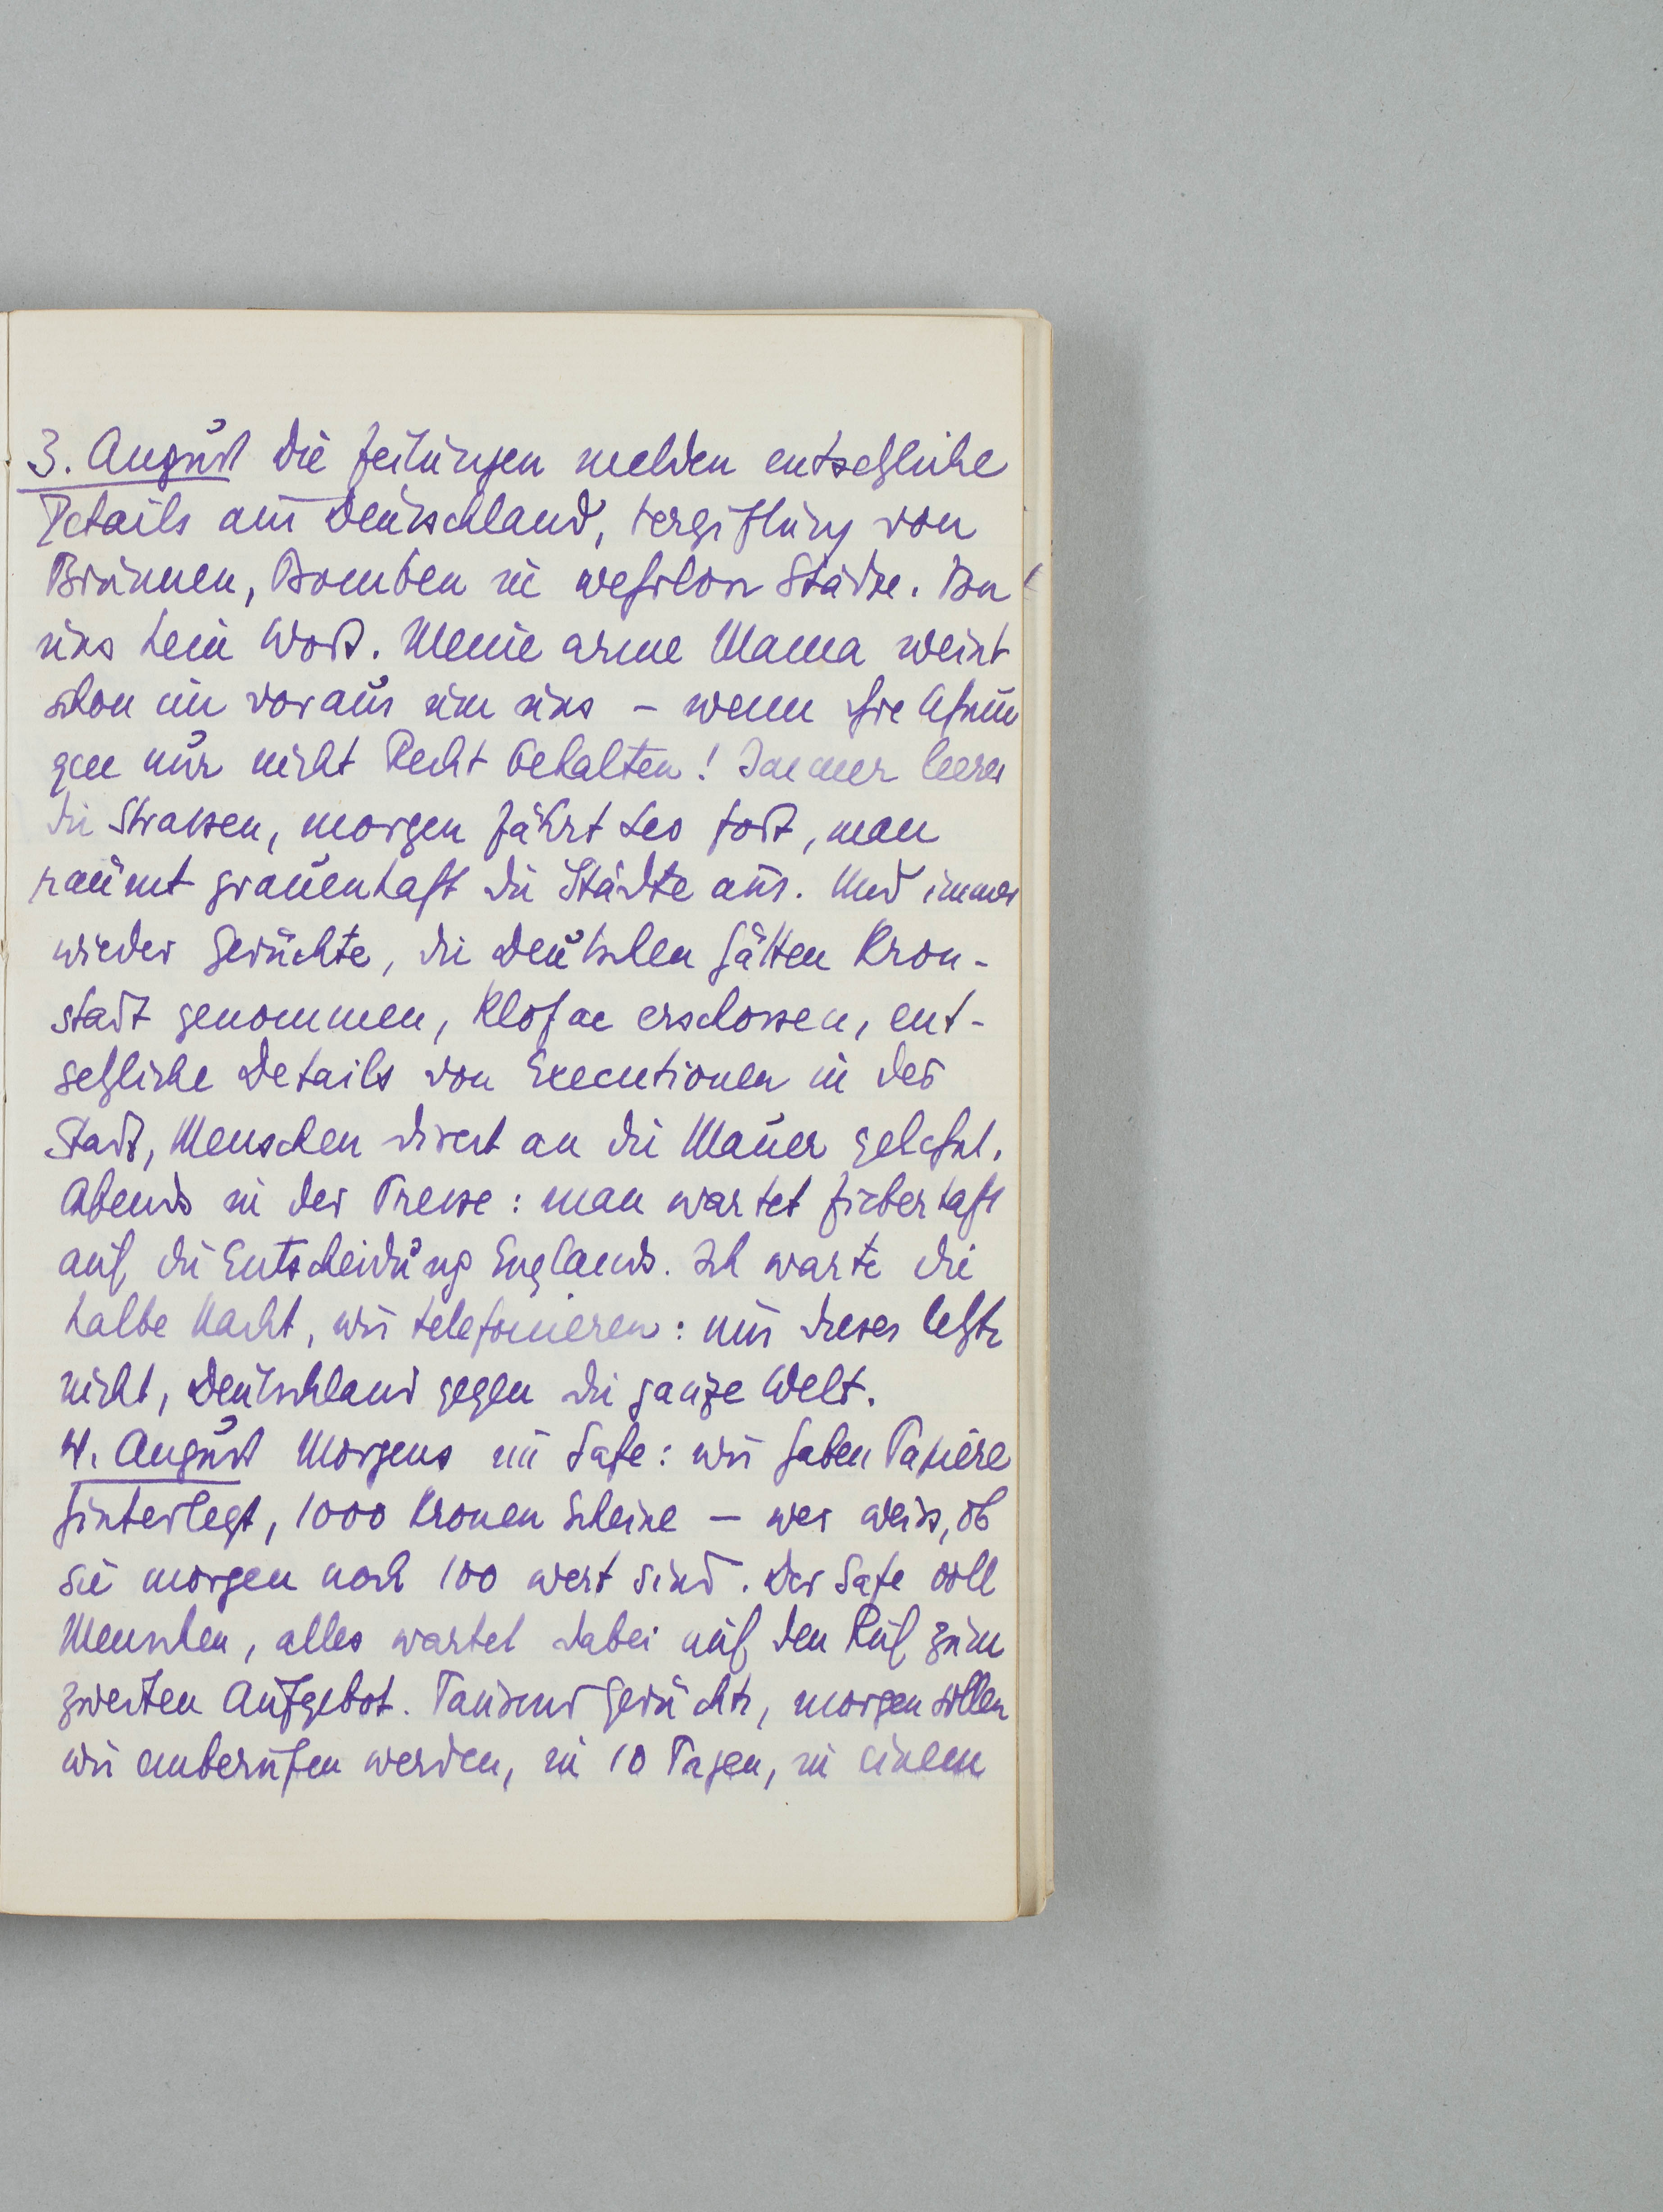 3. August Die Zeitungen melden entsetzliche
Details aus Deutschland, Vergiftung von
Brünnen, Bomben in wehrlose Städte. Von
uns kein Wort. Meine arme Mama weint
schon im voraus um uns – wenn ihre Ahnun
gen nur nicht Recht behalten! Immer leerer
die Strassen, morgen fährt Leo fort, man
räumt grauenhaft die Städte aus. Und immer
wieder Gerüchte, die Deutschen hätten Kron-
stadt genommen, Klofac erschossen, ent-
setzliche Details von Executionen in der
Stadt, Menschen direct an die Mauer gelehnt.
Abends in der Presse: man wartet fieberhaft
auf die Entscheidung Englands. Ich warte die
halbe Nacht, wir telefonieren: nur dieses letzte
nicht, Deutschland gegen die ganze Welt.
4. August Morgens im Safe: wir haben Papiere
hinterlegt, 1000 Kronen Scheine – wer weiss, ob
sie morgen noch 100 wert sind. Der Safe voll
Menschen, alles wartet dabei auf den Ruf zum
zweiten Aufgebot. Tausend Gerüchte, morgen sollen
wir einberufen werden, in 10 Tagen, in einem